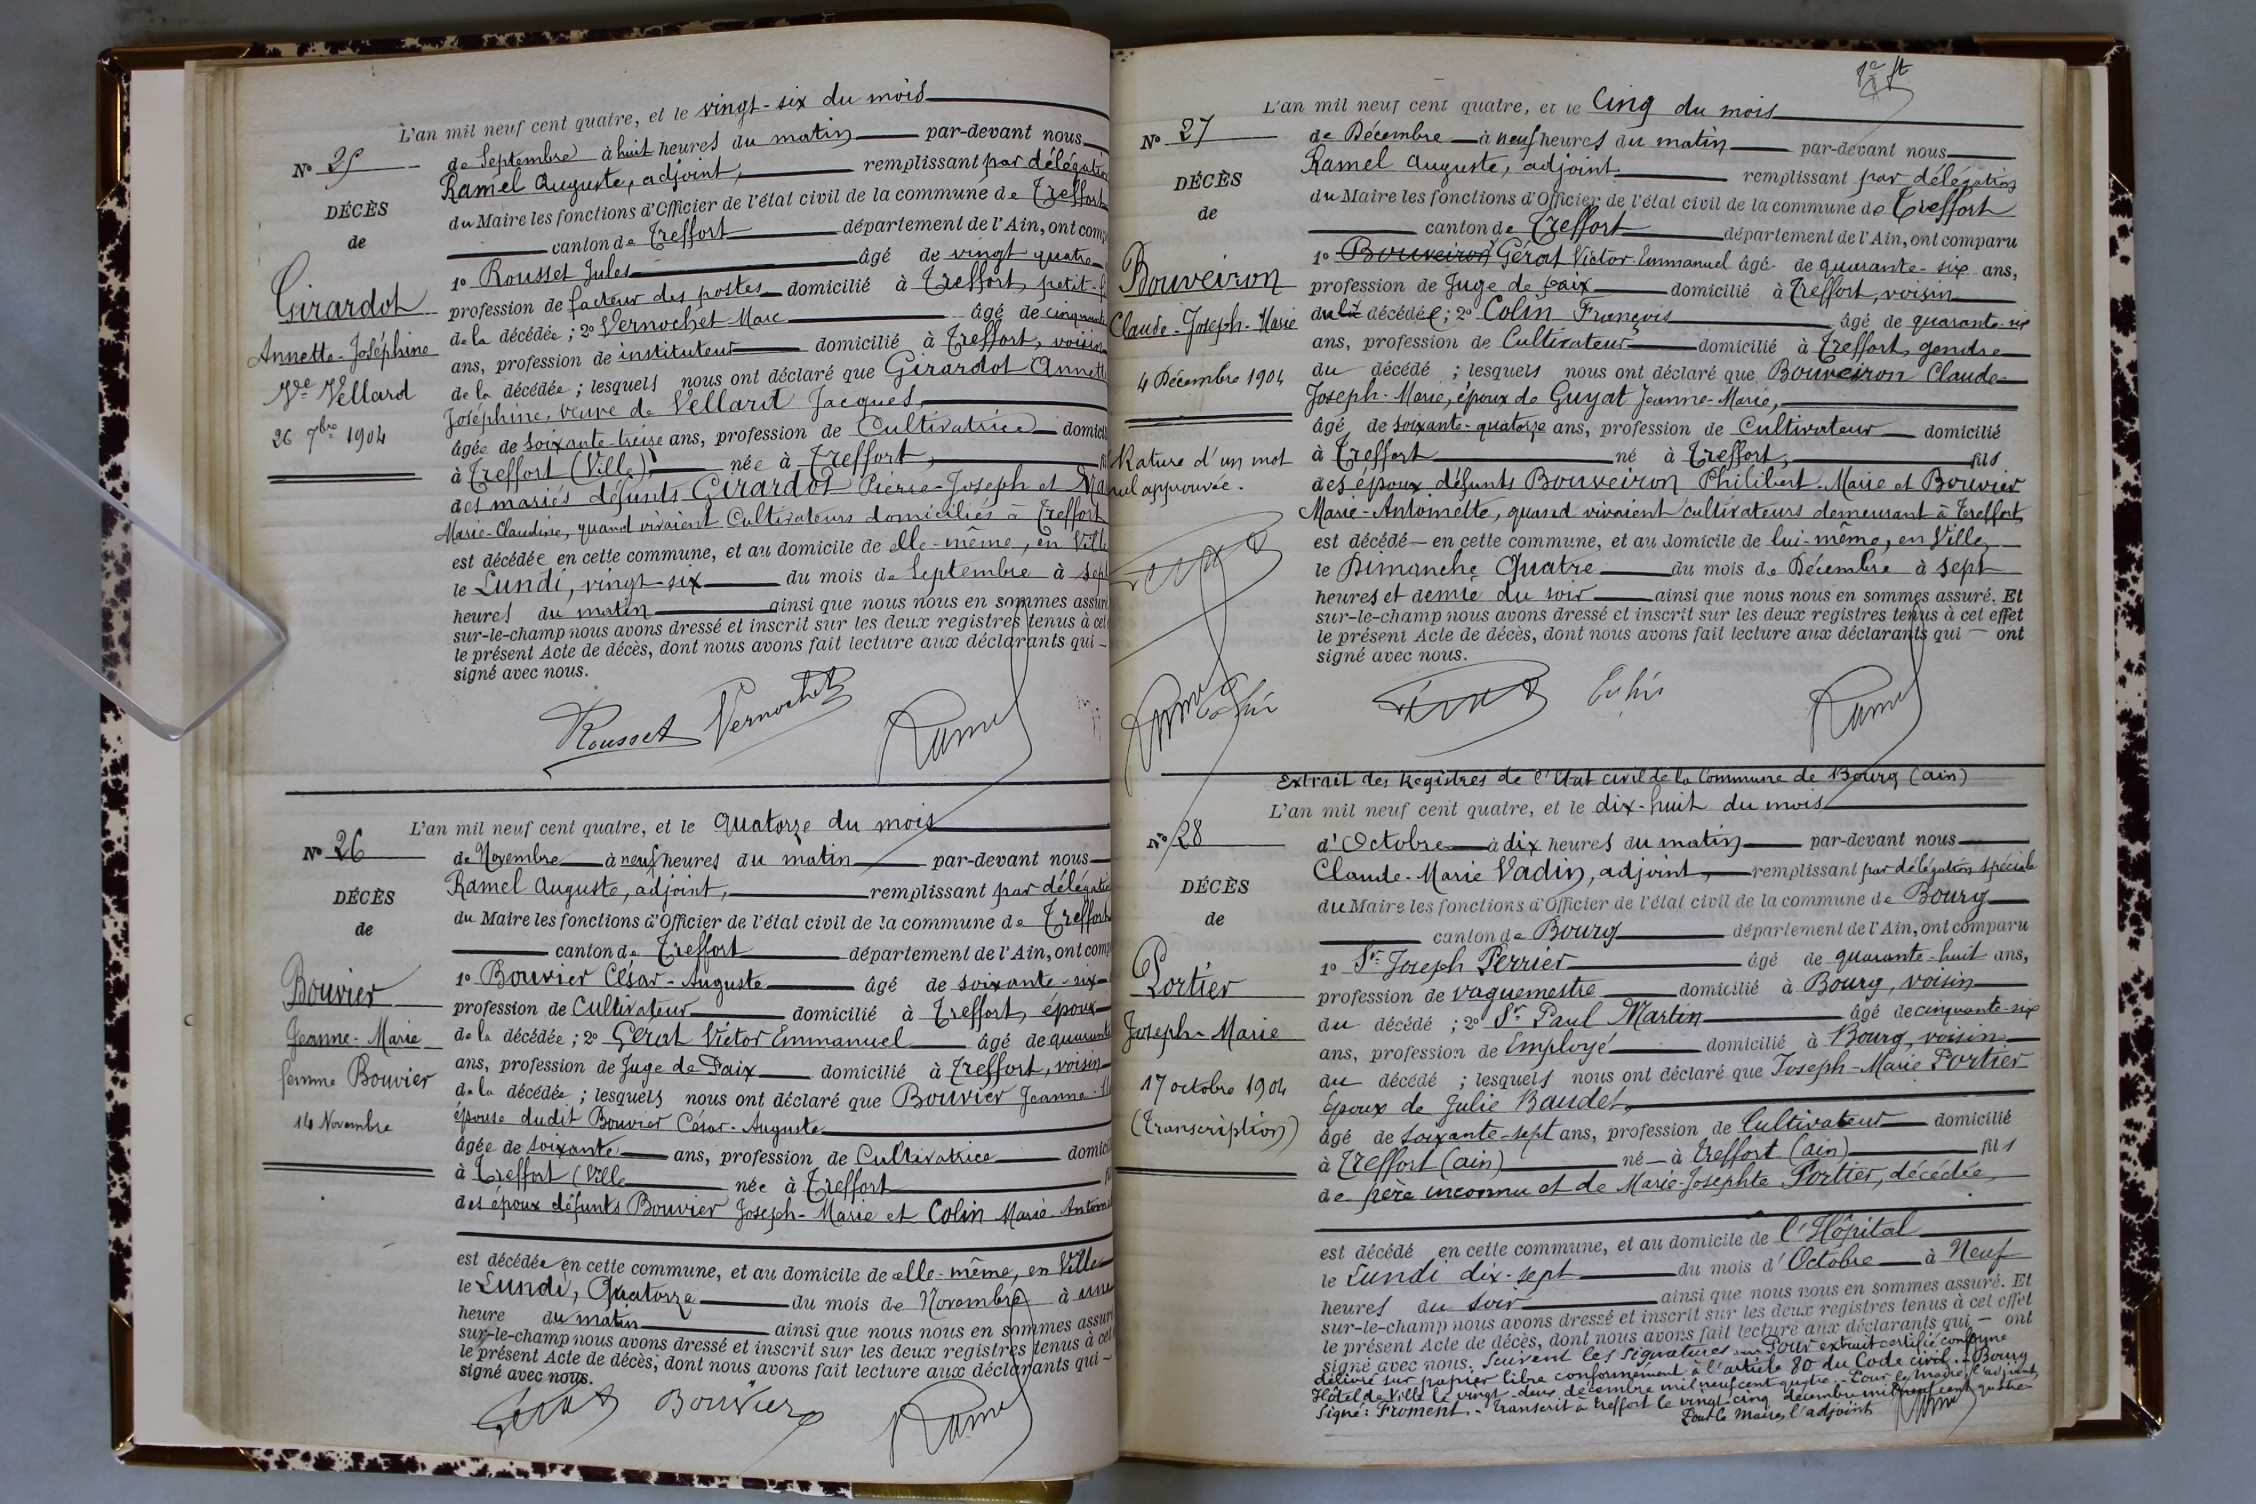 L'an mil neuf cent quatre, et le vingt-six du mois
No 25
de Septembre à huit heures du matin par-devant nous
Ramel Auguste, adjoint, remplissant par délégation
DÉCÈS
du Maire les fonctions d'Officier de l'état civil de la commune de Treffort
de
canton de Treffort département de l'Ain, ont comp
1o Rousset Jules âgé de vingt quatre
Girardot
profession de facteur des postes domicilié à Treffort, petit-f
de la décédée ; 2o Vernochet Marc âgé de cinquante
Annette-Joséphine
ans, profession de instituteur domicilié à Treffort, voisin
de la décédée ; lesquels nous ont déclaré que Girardot Annette
Vve Vellard
Joséphine, veuve de Vellard Jacques,
26 7bre 1904
âgée de soixante-treize ans, profession de Cultivatrice domicil
à Treffort (Ville), née à Treffort,
des mariés défunts Girardot Pierre-Joseph et
Marie-Claudine, quand vivaient Cultivateurs domiciliés à Treffort
est décédée en cette commune, et au domicile de elle-même, en Ville
le Lundi, vingt-six du mois de Septembre à sept
heures du matin ainsi que nous nous en sommes assuré
sur-le-champ nous avons dressé et inscrit sur les deux registres tenus à cet
le présent Acte de décès, dont nous avons fait lecture aux déclarants qui –
signé avec nous.
Rousset Vernochet Ramel
L'an mil neuf cent quatre, et le quatorze du mois
No 26
de Novembre à neuf heures du matin par-devant nous
Ramel Auguste, adjoint, remplissant par délégatio
DÉCÈS
du Maire les fonctions d'Officier de l'état civil de la commune de Treffort
de
canton de Treffort département de l'Ain, ont comp
1o Bouvier César-Auguste âgé de soixante-six
Bouvier
profession de Cultivateur domicilié à Treffort, époux
Jeanne-Marie
de la décédée ; 2o Gérat Victor Emmanuel âgé de quarante
ans, profession de Juge de Paix domicilié à Treffort, voisin
femme Bouvier
de la décédée ; lesquels nous ont déclaré que Bouvier Jeanne-M
14 Novembre
épouse dudit Bouvier César-Auguste
âgée de soixante ans, profession de Cultivatrice domicil
à Treffort (Ville née à Treffort
des époux défunts Bouvier Joseph-Marie et Colin Marie-Antoine
est décédée en cette commune, et au domicile de elle-même, en Ville
le Lundi, Quatorze du mois de Novembre à une
heure du matin ainsi que nous nous en sommes assuré
sur-le-champ nous avons dressé et inscrit sur les deux registres tenus à cet
le présent Acte de décès, dont nous avons fait lecture aux déclarants qui –
signé avec nous.
Gérat Bouvier Ramel
L'an mil neuf cent quatre, et le Cinq du mois
No 27
de Décembre à neuf heures du matin par-devant nous
Ramel Auguste, adjoint remplissant par délégation
DÉCÈS
du Maire les fonctions d'Officier de l'état civil de la commune de Treffort
de
canton de Treffort département de l'Ain, ont comparu
1o Bouveiron Gérat Victor-Emmanuel âgé de quarante-six ans,
Bouveiron
profession de Juge de paix domicilié à Treffort, voisin
Claude-Joseph-Marie
du décédé ; 2o Colin François âgé de quarante-six
ans, profession de Cultivateur domicilié à Treffort, gendre
4 Décembre 1904
du décédé ; lesquels nous ont déclaré que Bouveiron Claude-
Joseph-Marie, époux de Guyat Jeanne-Marie,
âgé de soixante-quatorze ans, profession de Cultivateur domicilié
Rature d'un mot
à Treffort né à Treffort, fils
nul approuvée.
des époux défunts Bouveiron Philibert-Marie et Bouvier
Marie-Antoinette, quand vivaient cultivateurs demeurant à Treffort
est décédé – en cette commune, et au domicile de lui-même, en Ville,
le Dimanche Quatre du mois de Décembre à sept
heures et demie du soir ainsi que nous nous en sommes assuré. Et
sur-le-champ nous avons dressé et inscrit sur les deux registres tenus à cet effet
le présent Acte de décès, dont nous avons fait lecture aux déclarants qui – ont
signé avec nous.
Gérat Colin Ramel
Ramel Colin
Extrait des Registres de l'Etat civil de la Commune de Bourg (Ain)
L'an mil neuf cent quatre, et le dix-huit du mois
No 28
d'Octobre à dix heures du matin par-devant nous
Claude-Marie Vadin, adjoint, remplissant par délégation spéciale
DÉCÈS
du Maire les fonctions d'Officier de l'état civil de la commune de Bourg
de
canton de Bourg département de l'Ain, ont comparu
1o Sr Joseph Perrier âgé de quarante-huit ans,
Portier
profession de vaguemestre domicilié à Bourg, voisin
Joseph-Marie
du décédé ; 2o Sr Paul Martin âgé de cinquante-six
ans, profession de Employé domicilié à Bourg, voisin
17 octobre 1904
du décédé ; lesquels nous ont déclaré que Joseph-Marie Portier
époux de Julie Baudet,
(Transcription)
âgé de soixante-sept ans, profession de Cultivateur domicilié
à Treffort (Ain) né – à Treffort (Ain) fils
de père inconnu et de Marie-Josephte Portier, décédée,
est décédé en cette commune, et au domicile de l'Hôpital
le Lundi dix-sept du mois d'Octobre à Neuf
heures du soir ainsi que nous nous en sommes assuré. Et
sur-le-champ nous avons dressé et inscrit sur les deux registres tenus à cet effet
le présent Acte de décès, dont nous avons fait lecture aux déclarants qui – ont
signé avec nous. Suivent les signatures Pour extrait certifié conforme
délivré sur papier libre conformément à l'article 80 du Code civil. Bourg
Hôtel de Ville le vingt-deux décembre mil neuf cent quatre. Pour le Maire, l'adjoint,
Signé : Froment. Transcrit à Treffort le vingt-cinq décembre mil neuf cent quatre
Pour le Maire, l'adjoint Ramel